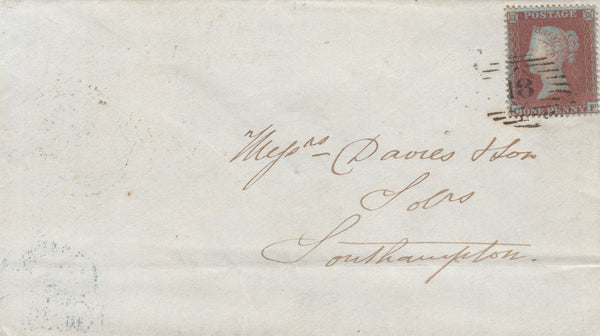 POSTAGE
18
ONE PENNY
F
Messrs Davies & Son
Solrs
Southampton.